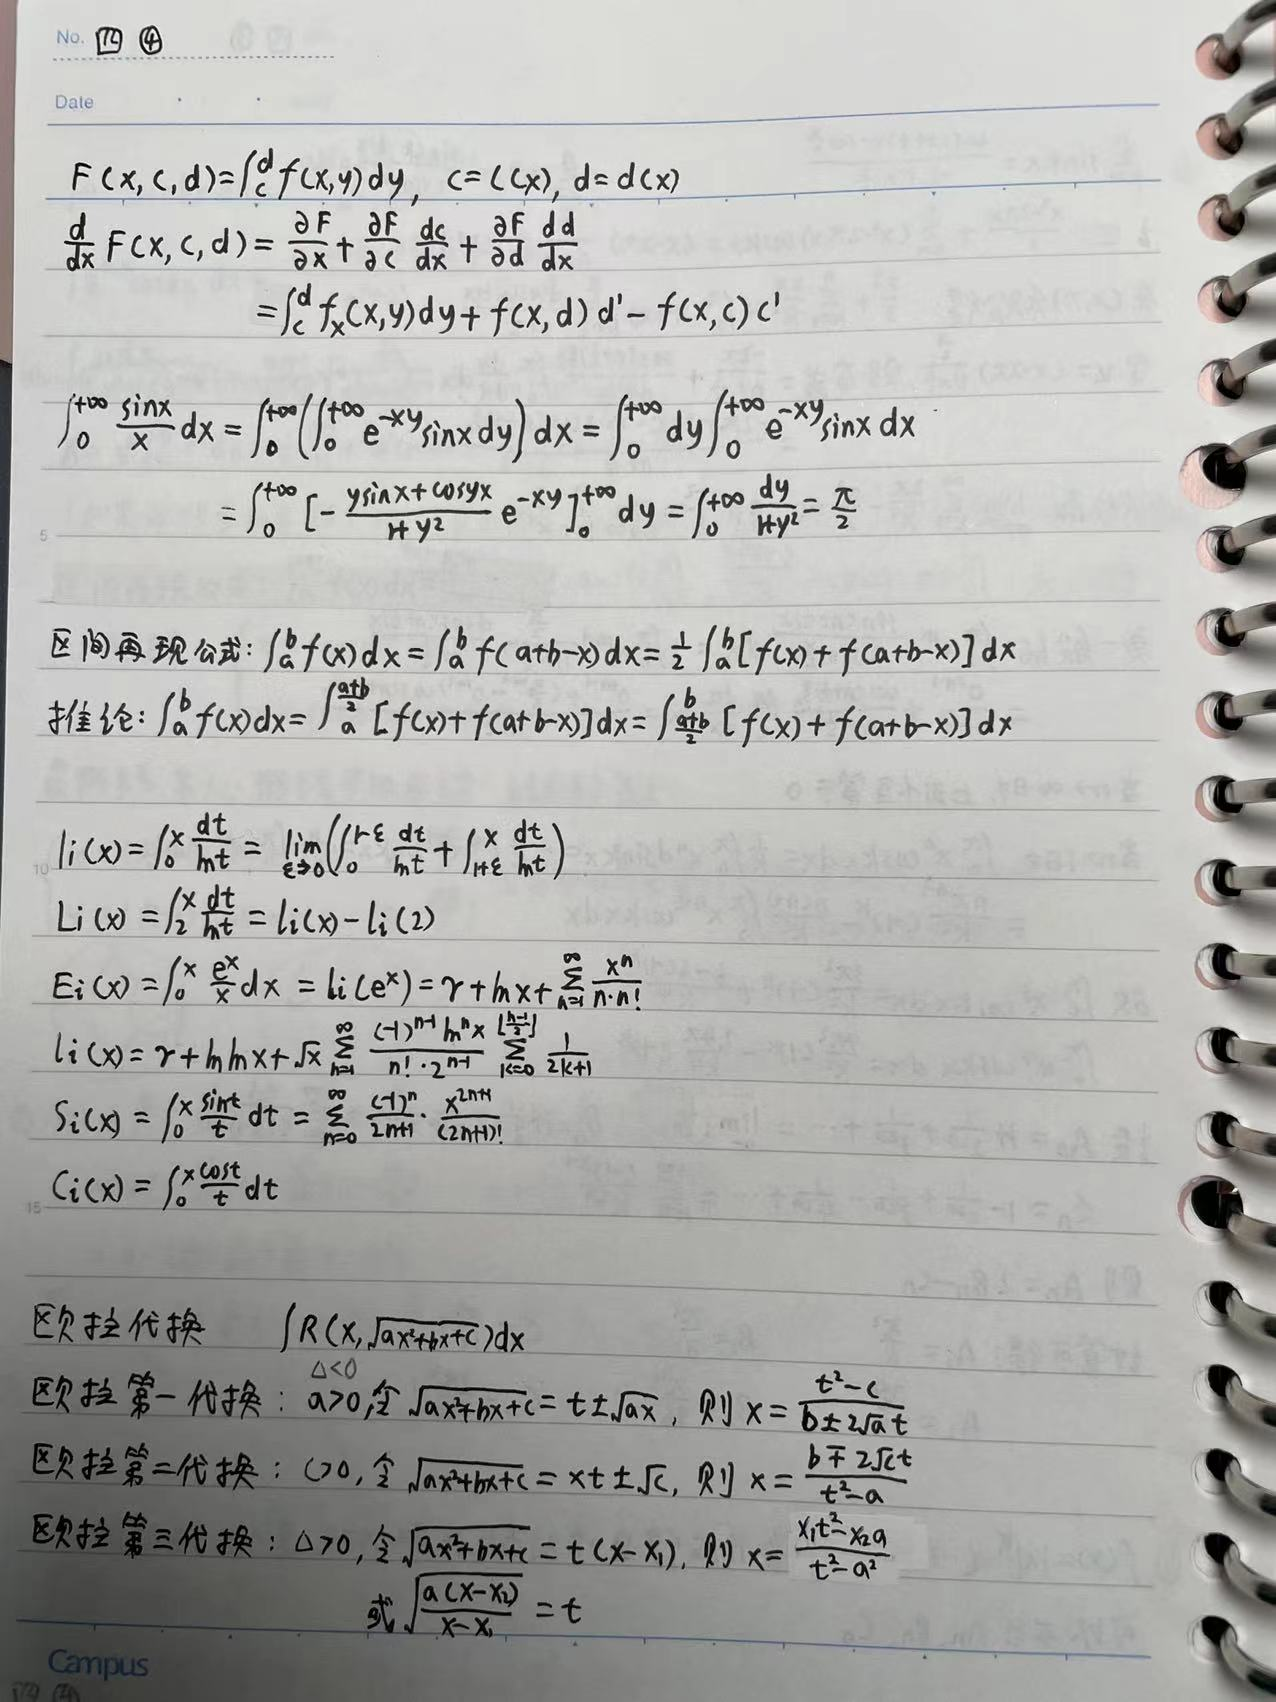 No. 四 ④
Date
F(x,c,d)=∫_c^d f(x,y)dy, c=c(x), d=d(x)
d/dx F(x,c,d)= ∂F/∂x + ∂F/∂c dc/dx + ∂F/∂d dd/dx
=∫_c^d f_x(x,y)dy+f(x,d)d'-f(x,c)c'
∫_0^{+∞} sinx/x dx=∫_0^{+∞}(∫_0^{+∞} e^{-xy}sinxdy)dx=∫_0^{+∞}dy∫_0^{+∞}e^{-xy}sinxdx
=∫_0^{+∞}[-(ysinx+cosyx)/(1+y²) e^{-xy}]_0^{+∞}dy=∫_0^{+∞} dy/(1+y²)=π/2
5
区间再现公式:∫_a^b f(x)dx=∫_a^b f(a+b-x)dx=1/2∫_a^b[f(x)+f(a+b-x)]dx
推论:∫_a^b f(x)dx=∫_a^{(a+b)/2}[f(x)+f(a+b-x)]dx=∫_{(a+b)/2}^b[f(x)+f(a+b-x)]dx
li(x)=∫_0^x dt/lnt = lim_{ε→0}(∫_0^{1-ε} dt/lnt+∫_{1+ε}^x dt/lnt)
10
Li(x)=∫_2^x dt/lnt=li(x)-li(2)
Ei(x)=∫_0^x e^x/x dx=li(e^x)=γ+lnx+∑_{n=1}^∞ x^n/(n·n!)
li(x)=γ+lnlnx+√x ∑_{n=1}^∞ (-1)^{n-1}ln^n x/(n!·2^{n-1}) ∑_{k=0}^{⌊(n-1)/2⌋} 1/(2k+1)
Si(x)=∫_0^x sint/t dt=∑_{n=0}^∞ (-1)^n/(2n+1)·x^{2n+1}/(2n+1)!
Ci(x)=∫_0^x cost/t dt
15
欧拉代换 ∫R(x,√(ax²+bx+c))dx
Δ<0
欧拉第一代换: a>0,令√(ax²+bx+c)=t±√ax, 则x=(t²-c)/(b±2√a t)
欧拉第二代换: c>0,令√(ax²+bx+c)=xt±√c, 则x=(b∓2√ct)/(t²-a)
欧拉第三代换: Δ>0,令√(ax²+bx+c)=t(x-x₁), 则x=(x₁t²-x₂a)/(t²-a²)
或√(a(x-x₂)/(x-x₁))=t
Campus